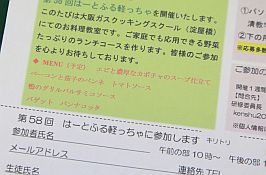 第38回 はーとふる軽っちゃを開催いたします。
このたびは大阪ガスクッキングスクール(淀屋橋)
にてのお料理教室です。ご家庭でも応用できる野菜
たっぷりのランチコースを作ります。皆様のご参加
を心よりお待ちしております。
◆MENU(予定) エビと濃厚なカボチャのスープ仕立て
ベーコンと茄子のペンネ トマトソース
鴨のグリルバルサミコソース
バゲット パンナコッタ
キリトリ
第58回 はーとふる軽っちゃに参加します
参加者氏名
午前の部10時〜
午後の部
メールアドレス
連絡先TEL
生徒氏名
求めて
①パ
②使
〈募
ご参加の
開催1週間
【問合
研修委員
kenshu20
※個人情報